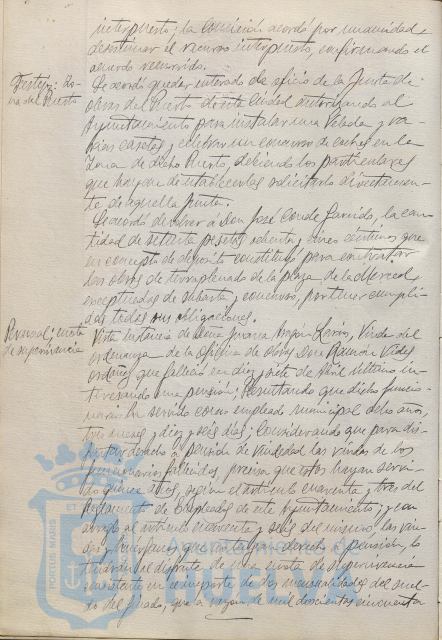 interpuesto; la Comisión acordó por unanimidad
desestimar el recurso interpuesto, confirmando el
acuerdo recurrido.
Festejos: Zona del Puerto
Se acordó quedar enterado de oficio de la Junta de
obras del Puerto de esta Ciudad autorizando al
Ayuntamiento para instalar una Velada y va-
rias casetas y celebrar un concurso de coches en la
Zona de dicho Puerto, debiendo los particulares
que hayan de establecerlas solicitarlo directamen-
te de aquella Junta.
Se acordó devolver a Don José Conde Garrido, la can-
tidad de setenta pesetas ochenta y cinco céntimos que
en concepto de depósito constituyó para contratar
las obras de terraplenado de la plaza de la Merced
exceptuadas de subasta y concurso, por tener cumpli-
das todas sus obligaciones.
Personal: cuota de supervivencia
Vista instancia de Doña Juana León, Viuda del
ordenanza de la Oficina de Obras Don Ramón Vides
Ordóñez que falleció en diez y siete de Abril último in-
teresando una pensión; Resultando que dicho funcio-
nario ha servido como empleado municipal ocho años,
tres meses y diez y seis días; Considerando que para dis-
frutar derecho a pensión de viudedad las viudas de los
funcionarios fallecidos precisa que estos hayan servi-
do quince años, según el artículo cuarenta y tres del
Reglamento de Empleados de este Ayuntamiento; y con
arreglo al artículo cuarenta y seis del mismo las viu-
das y huérfanos que no tengan derecho a pensión, lo
tendrán al disfrute de una cuota de supervivencia
consistente en el importe de dos mensualidades del suel-
do del finado, que a razón de mil doscientas cincuenta
PORTUS MARIS ET
Ayuntamiento de
HUELVA